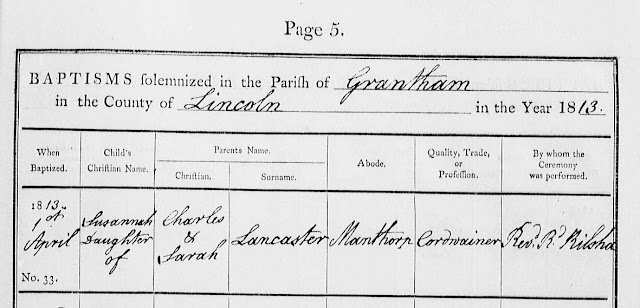 Page 5.
BAPTISMS solemnized in the Parish of Grantham
in the County of Lincoln in the Year 1813.
When Baptized.
Child's Christian Name.
Parents Name.
Christian.
Surname.
Abode.
Quality, Trade, or Profession.
By whom the Ceremony was performed.
1813.
1st
April
No. 33.
Susannah
Daughter
of
Charles
&
Sarah
Lancaster
Manthorp
Cordwainer
Revd. Rd.